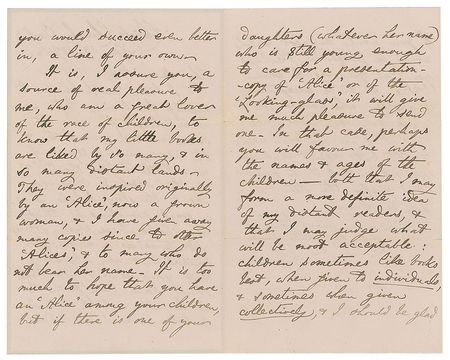 you would succeed even better
in, a line of your own.
It is, I assure you, a
source of real pleasure to
me, who am a great lover
of the race of children, to
know that my little books
are liked by so many, & in
so many distant lands.
They were inspired originally
by an "Alice", now a grown
woman, & I have given away
many copies since to other
"Alices", & to many who do
not bear her name. It is too
much to hope that you have
an "Alice" among your children,
but if there is one of your
daughters (whatever her name)
who is still young enough
to care for a presentation-
copy of "Alice" or of the
"Looking-glass", it will give
me much pleasure to send
one. In that case, perhaps
you will favour me with
the names & ages of the
children — both that I may
form a more definite idea
of my distant readers, &
that I may judge what
will be most acceptable:
children sometimes like books
best, when given to individuals,
& sometimes when given
collectively, & I should be glad